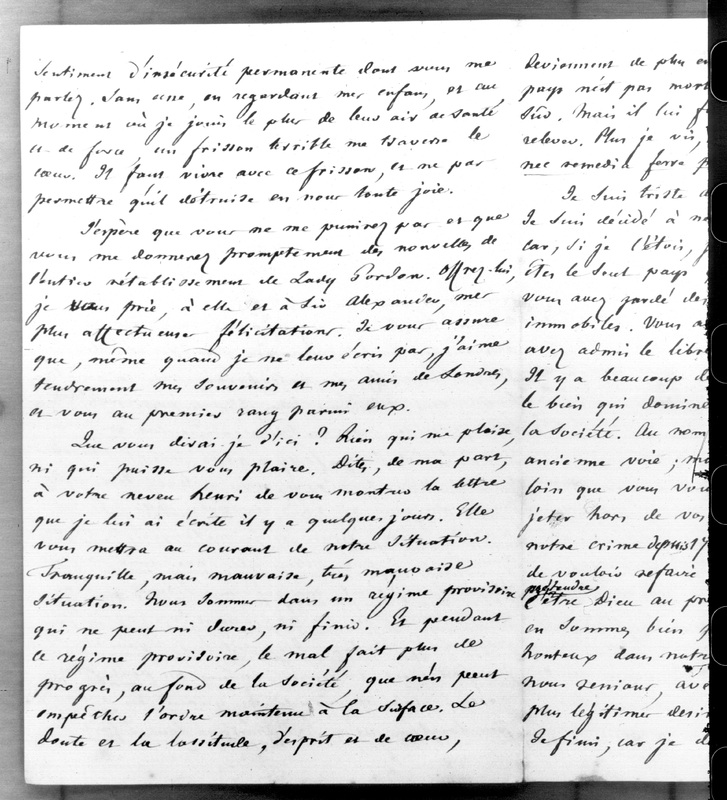 sentiment d'insécurité permanente dont vous me
parlez. Sans cesse, en regardant mes enfans, et au
moment où je jouis le plus de leur air de santé
et de force un frisson terrible me traverse le
cœur. Il faut vivre avec ce frisson, et ne pas
permettre qu'il détruise en nous toute joie.
J'espère que vous ne me punirez pas et que
vous me donnerez promptement des nouvelles de
l'entier rétablissement de Lady Gordon. Offrez-lui,
je vous prie, à elle et à Sir Alexander, mes
plus affectueuses félicitations. Je vous assure
que, même quand je ne leur écris pas, j'aime
tendrement mes souvenirs et mes amis de Londres,
et vous au premier rang parmi eux.
Que vous dirai-je d'ici ? Rien qui me plaise,
ni qui puisse vous plaire. Dites, de ma part,
à votre neveu henri de vous montrer la lettre
que je lui ai écrite il y a quelques jours. Elle
vous mettra au courant de notre situation.
Tranquille, mais mauvaise, très mauvaise
situation. Nous sommes dans un régime provisoire
qui ne peut ni durer, ni finir. Et pendant
ce régime provisoire, le mal fait plus de
progrès, au fond de la société, que n'en peut
empêcher l'ordre maintenu à la surface. Le
doute et la lassitude, d'esprit et de cœur,
deviennent de plus en
pays n'est pas mort
sûr. Mais il lui f
relever. Plus je vis,
nec remedia ferre p
Je suis triste
Je suis décidé à n
car, si je l'étois, j
êtes le seul pays
vous avez gardé des
immobiles. Vous a
avez admis le libre
Il y a beaucoup d
le bien qui domine
la société. Au nom
ancienne voie, m
loin que vous vou
jeter hors de vos
notre crime depuis
de vouloir refaire
prétendre
être Dieu au pr
en sommes bien p
honteux dans notre
nous serions, ave
plus légitimes desi
Je finis, car je d